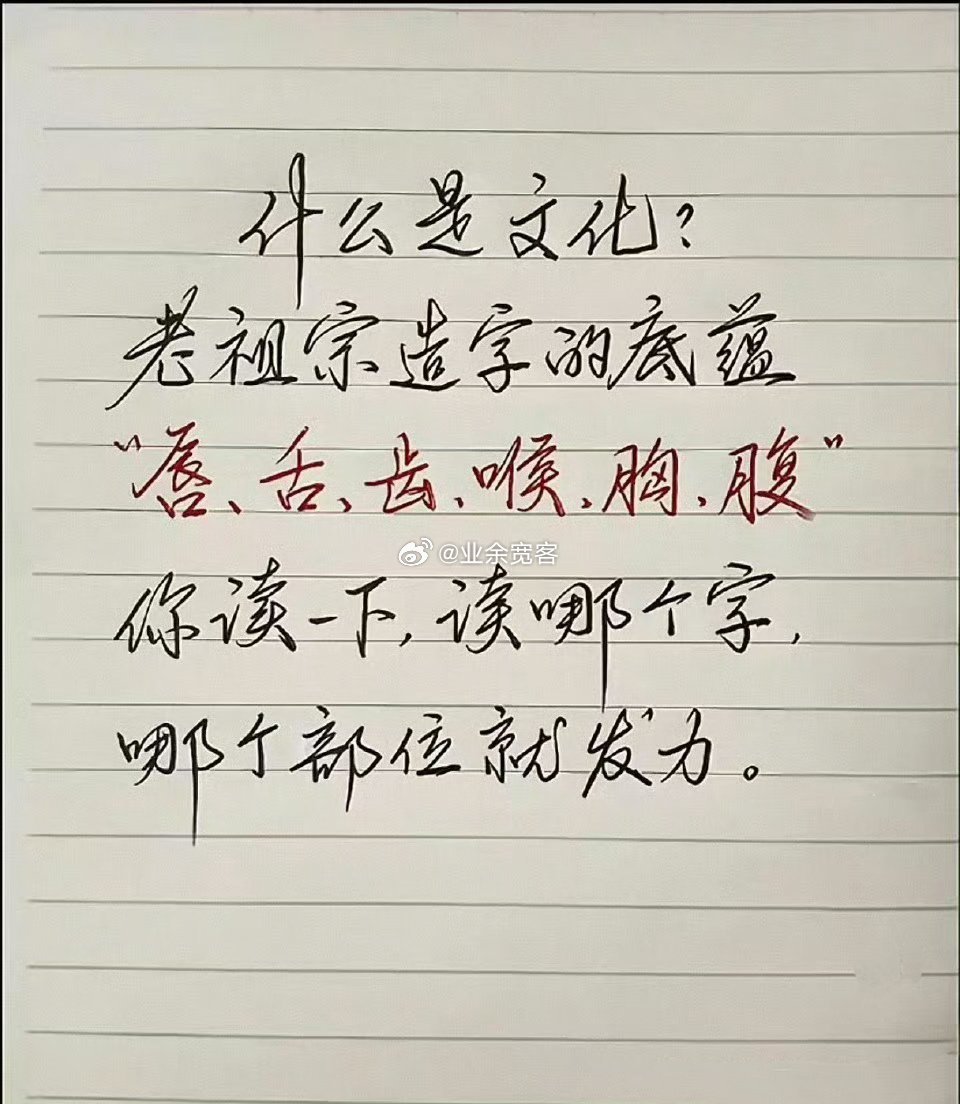 什么是文化?
老祖宗造字的底蕴
“唇、舌、齿、喉、胸、腹”
@业余宽客
你读一下,读哪个字,
哪个部位就发力。